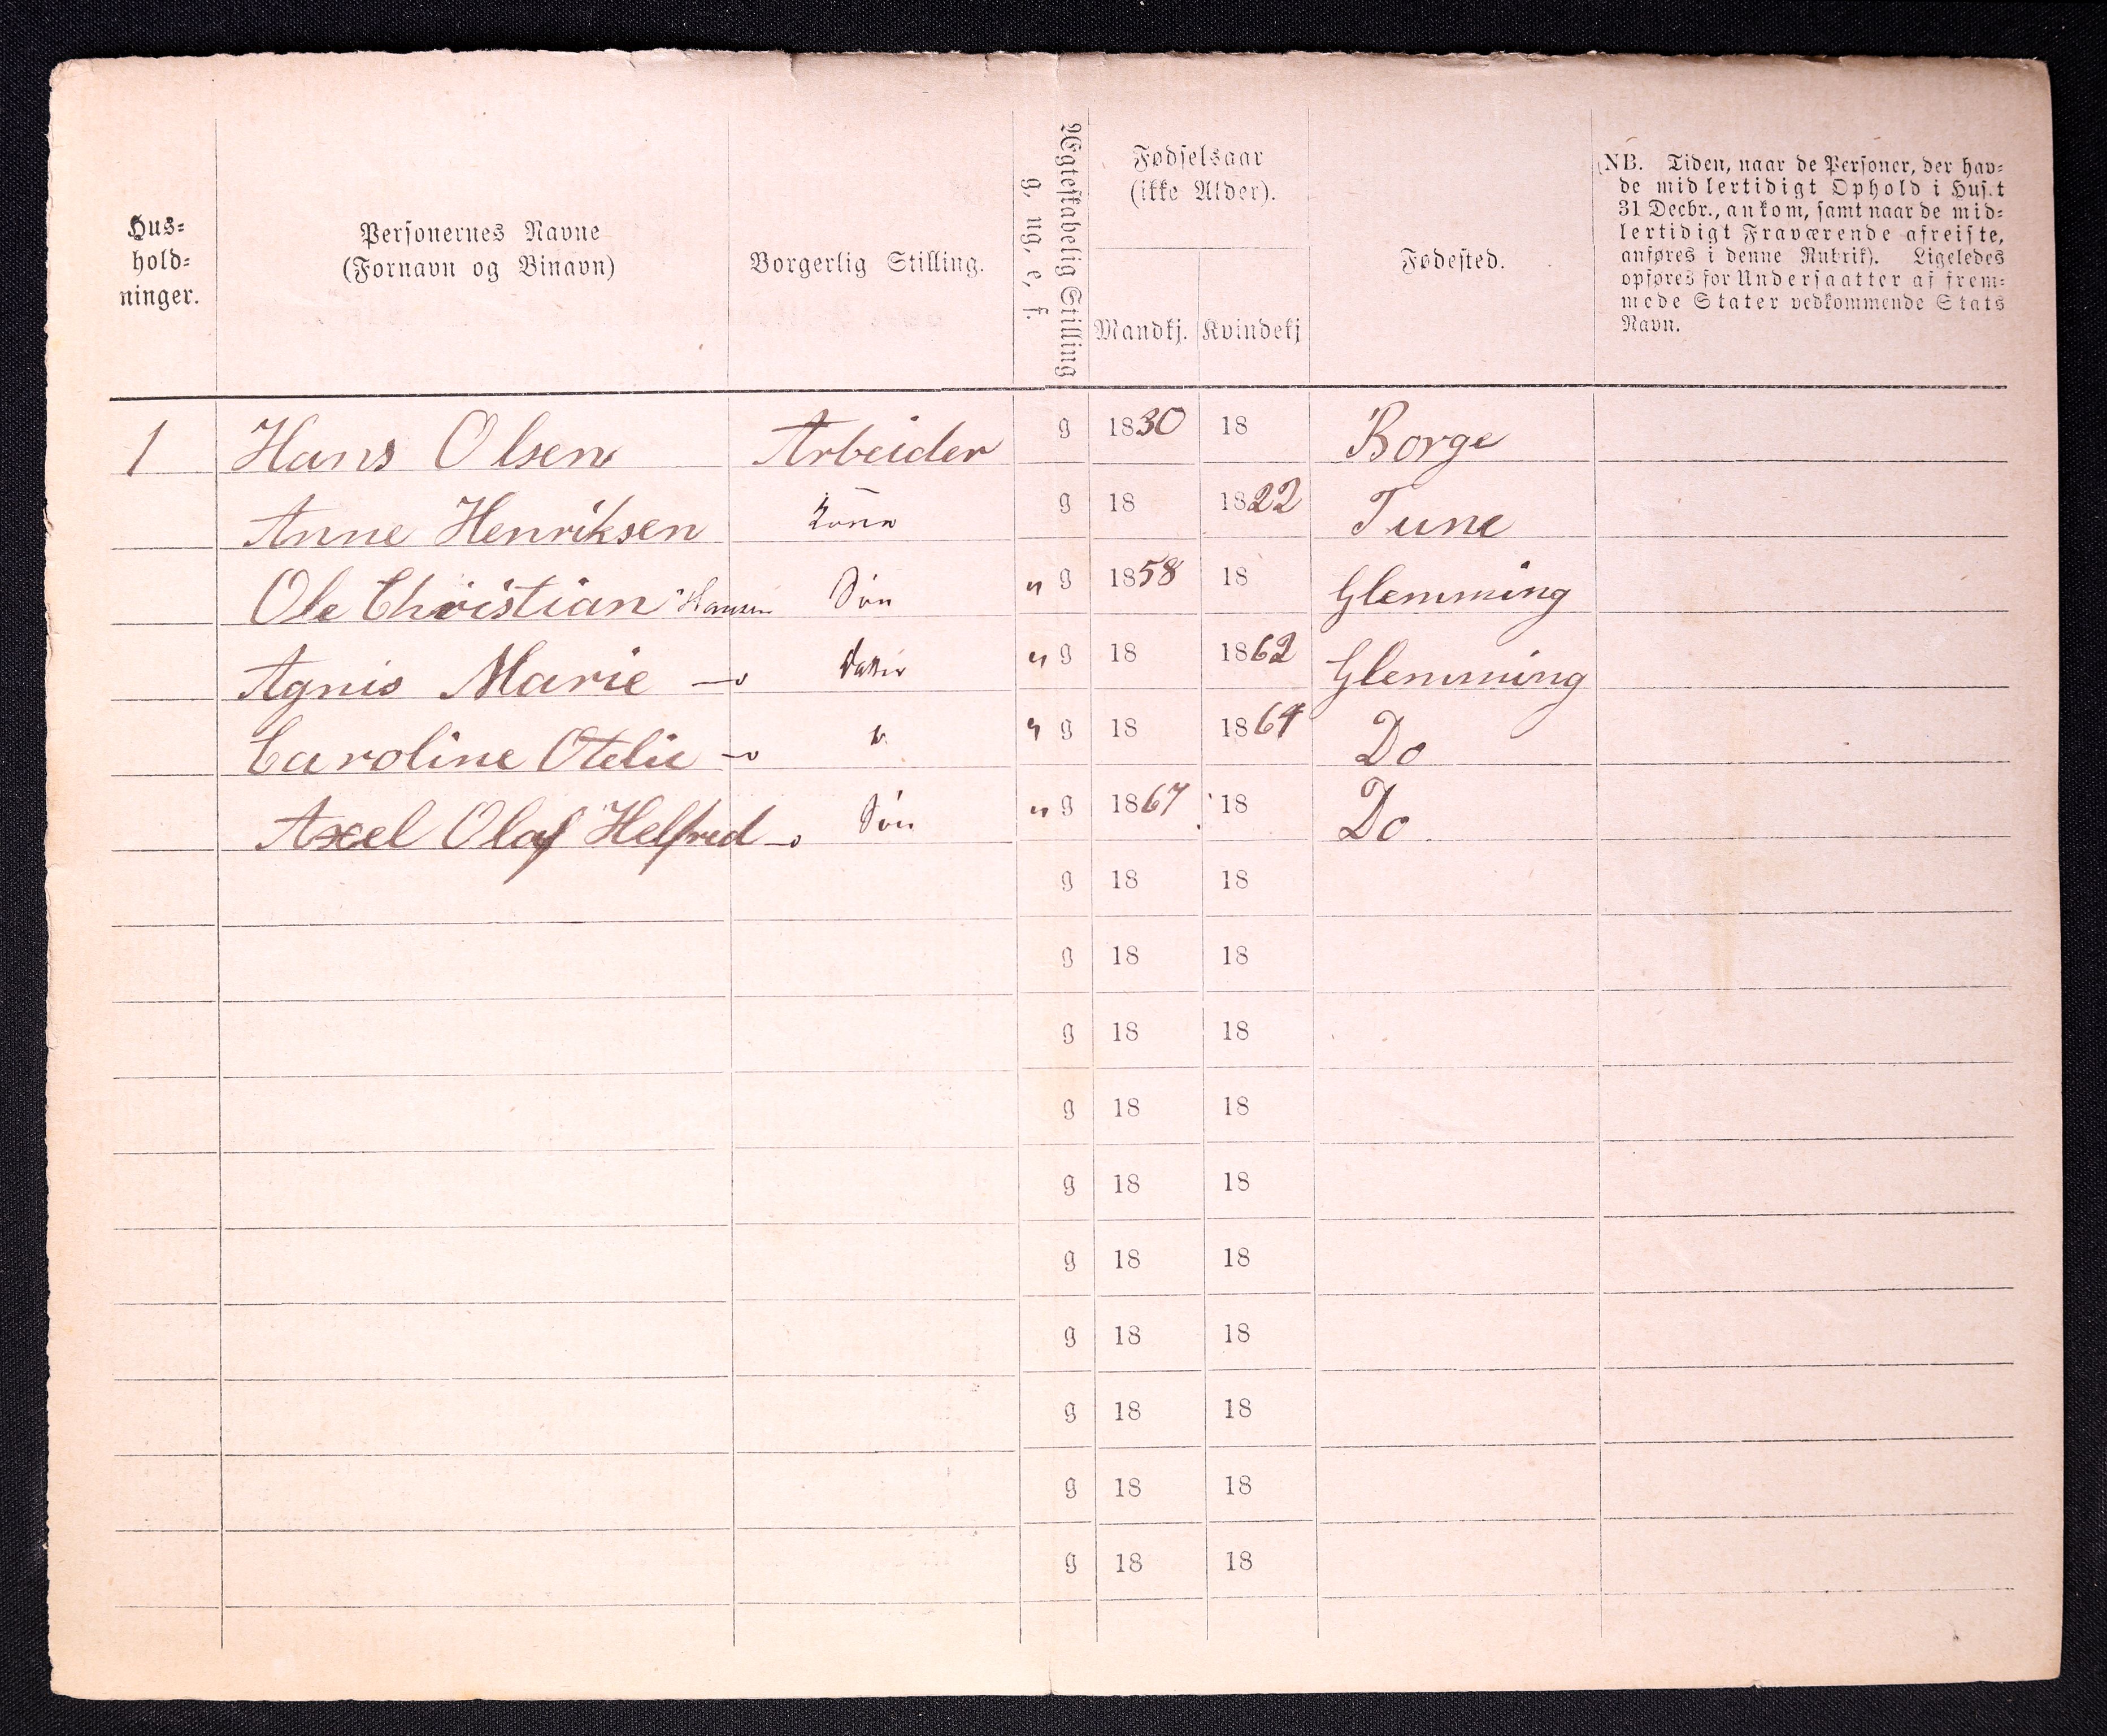 Hus-
hold-
ninger.
Personernes Navne
(Fornavn og Binavn)
Borgerlig Stilling.
Ægteskabelig Stilling
g, ug, e, f.
Fødselsaar
(ikke Alder).
Mandkj. Kvindekj
Fødested.
NB. Tiden, naar de Personer, der hav-
de midlertidigt Ophold i Huset
31 Decbr., ankom, samt naar de mid-
lertidigt Fraværende afreiste,
anføres i denne Rubrik). Ligeledes
opføres for Undersaatter af frem-
mede Stater vedkommende Stats
Navn.
1 Hans Olsen Arbeider g 1830 18 Borge
Anne Henriksen Kone g 18 1822 Tune
Ole Christian Hansen Søn ug 1858 18 Glemming
Agnis Marie —o Datter ug 18 1862 Glemming
Caroline Otelie —o " ug 18 1864 Do
Axel Olaf Helfred —o Søn ug 1867 18 Do
g 18 18
g 18 18
g 18 18
g 18 18
g 18 18
g 18 18
g 18 18
g 18 18
g 18 18
g 18 18